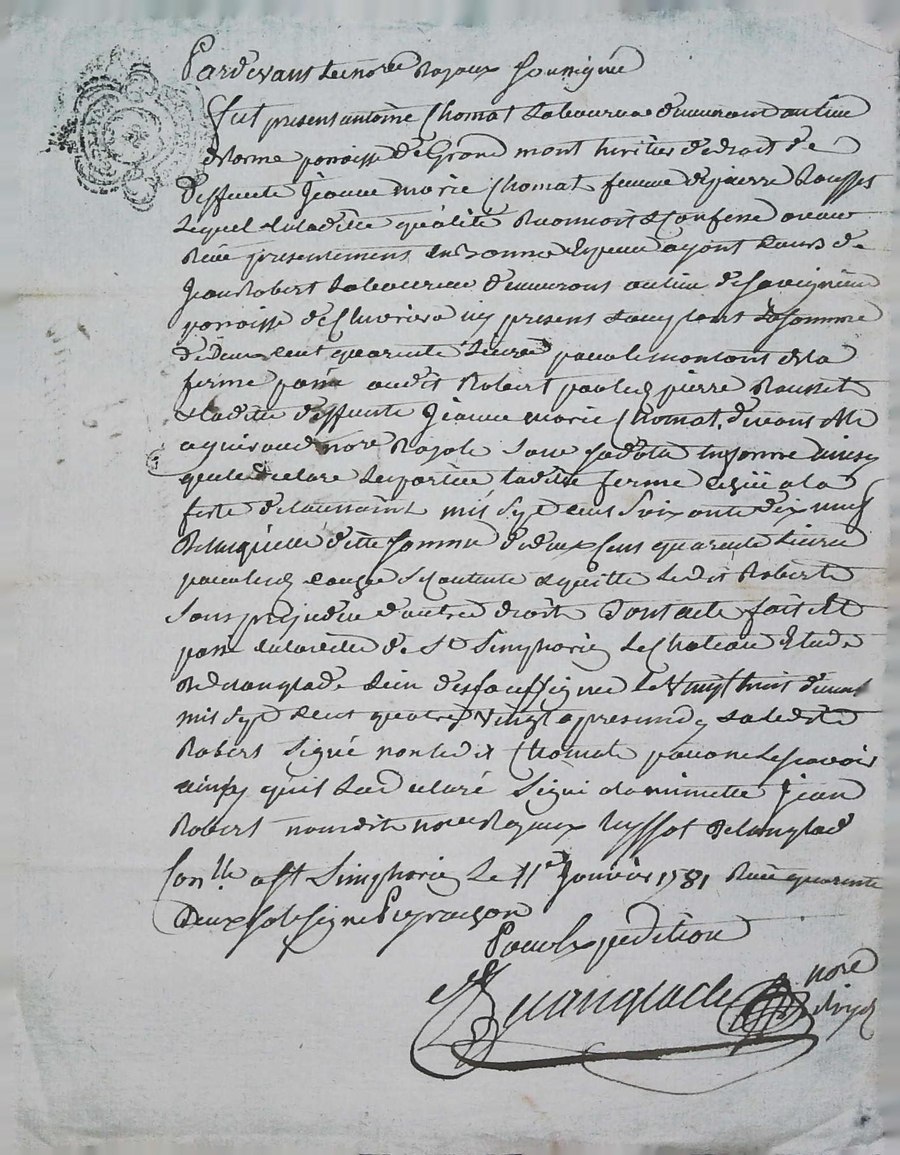 Pardevant les nores Royaux soussignés
fut present antoine Chomat Laboureur demeurant au lieu
delorme parroisse de Grand mont heritier de droit de
deffunte Jeanne marie Chomat femme de pierre Rousset
Lequel en ladite qualité Reconnoit & Confesse avoir
Reçu presentement en bonne Espece ayant Cours de
Jean Robert Laboureur demeurant au lieu de Savignieu
parroisse de icy present acceptant La Somme
de deux cent quarente Livres pour le montant de la
ferme passé audit Robert par led pierre Rousset
& ladite deffunte Jeanne marie Chomat, devant Me
nore Royal Sous Sa datte En forme ainsy
qu'il declare Les parties ladite ferme à la
feste de toussaint mil Sept cent Soixante dix neuf
De laquelle ditte Somme de deux Cens quarente Livres
pour led Chomat Se Contente & quitte Ledit Robert
Sans prejudice d'autres droits Dont acte fait Et
passé au de St Simphorien Le Chateau Etude
de delanglade L'un des soussignés Le Vingt huit
mil Sept Cent quatre Vingt apresmidy & a Ledit
Robert Signé non ledit Chomat pour ne Le Scavoir
ainsy quil L'a declaré Signé a la minutte Jean
Robert nousdits nores Royaux delanglade
Conlle a St Simphorien Le 11e Janvier 1781 Reçu quarente
Deux sols Signé Peyrachon
Pour Expedition
Delanglade nore